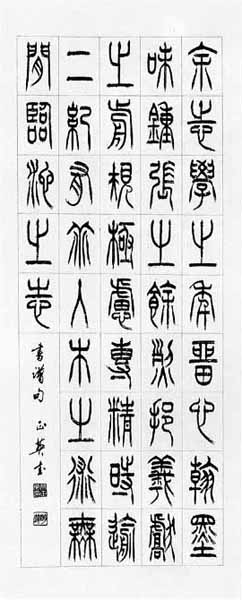 余志學之年留心翰墨
味鍾張之餘烈挹羲獻
之前規極慮專精時逾
二紀有乖入木之術無
間臨池之志
書譜句